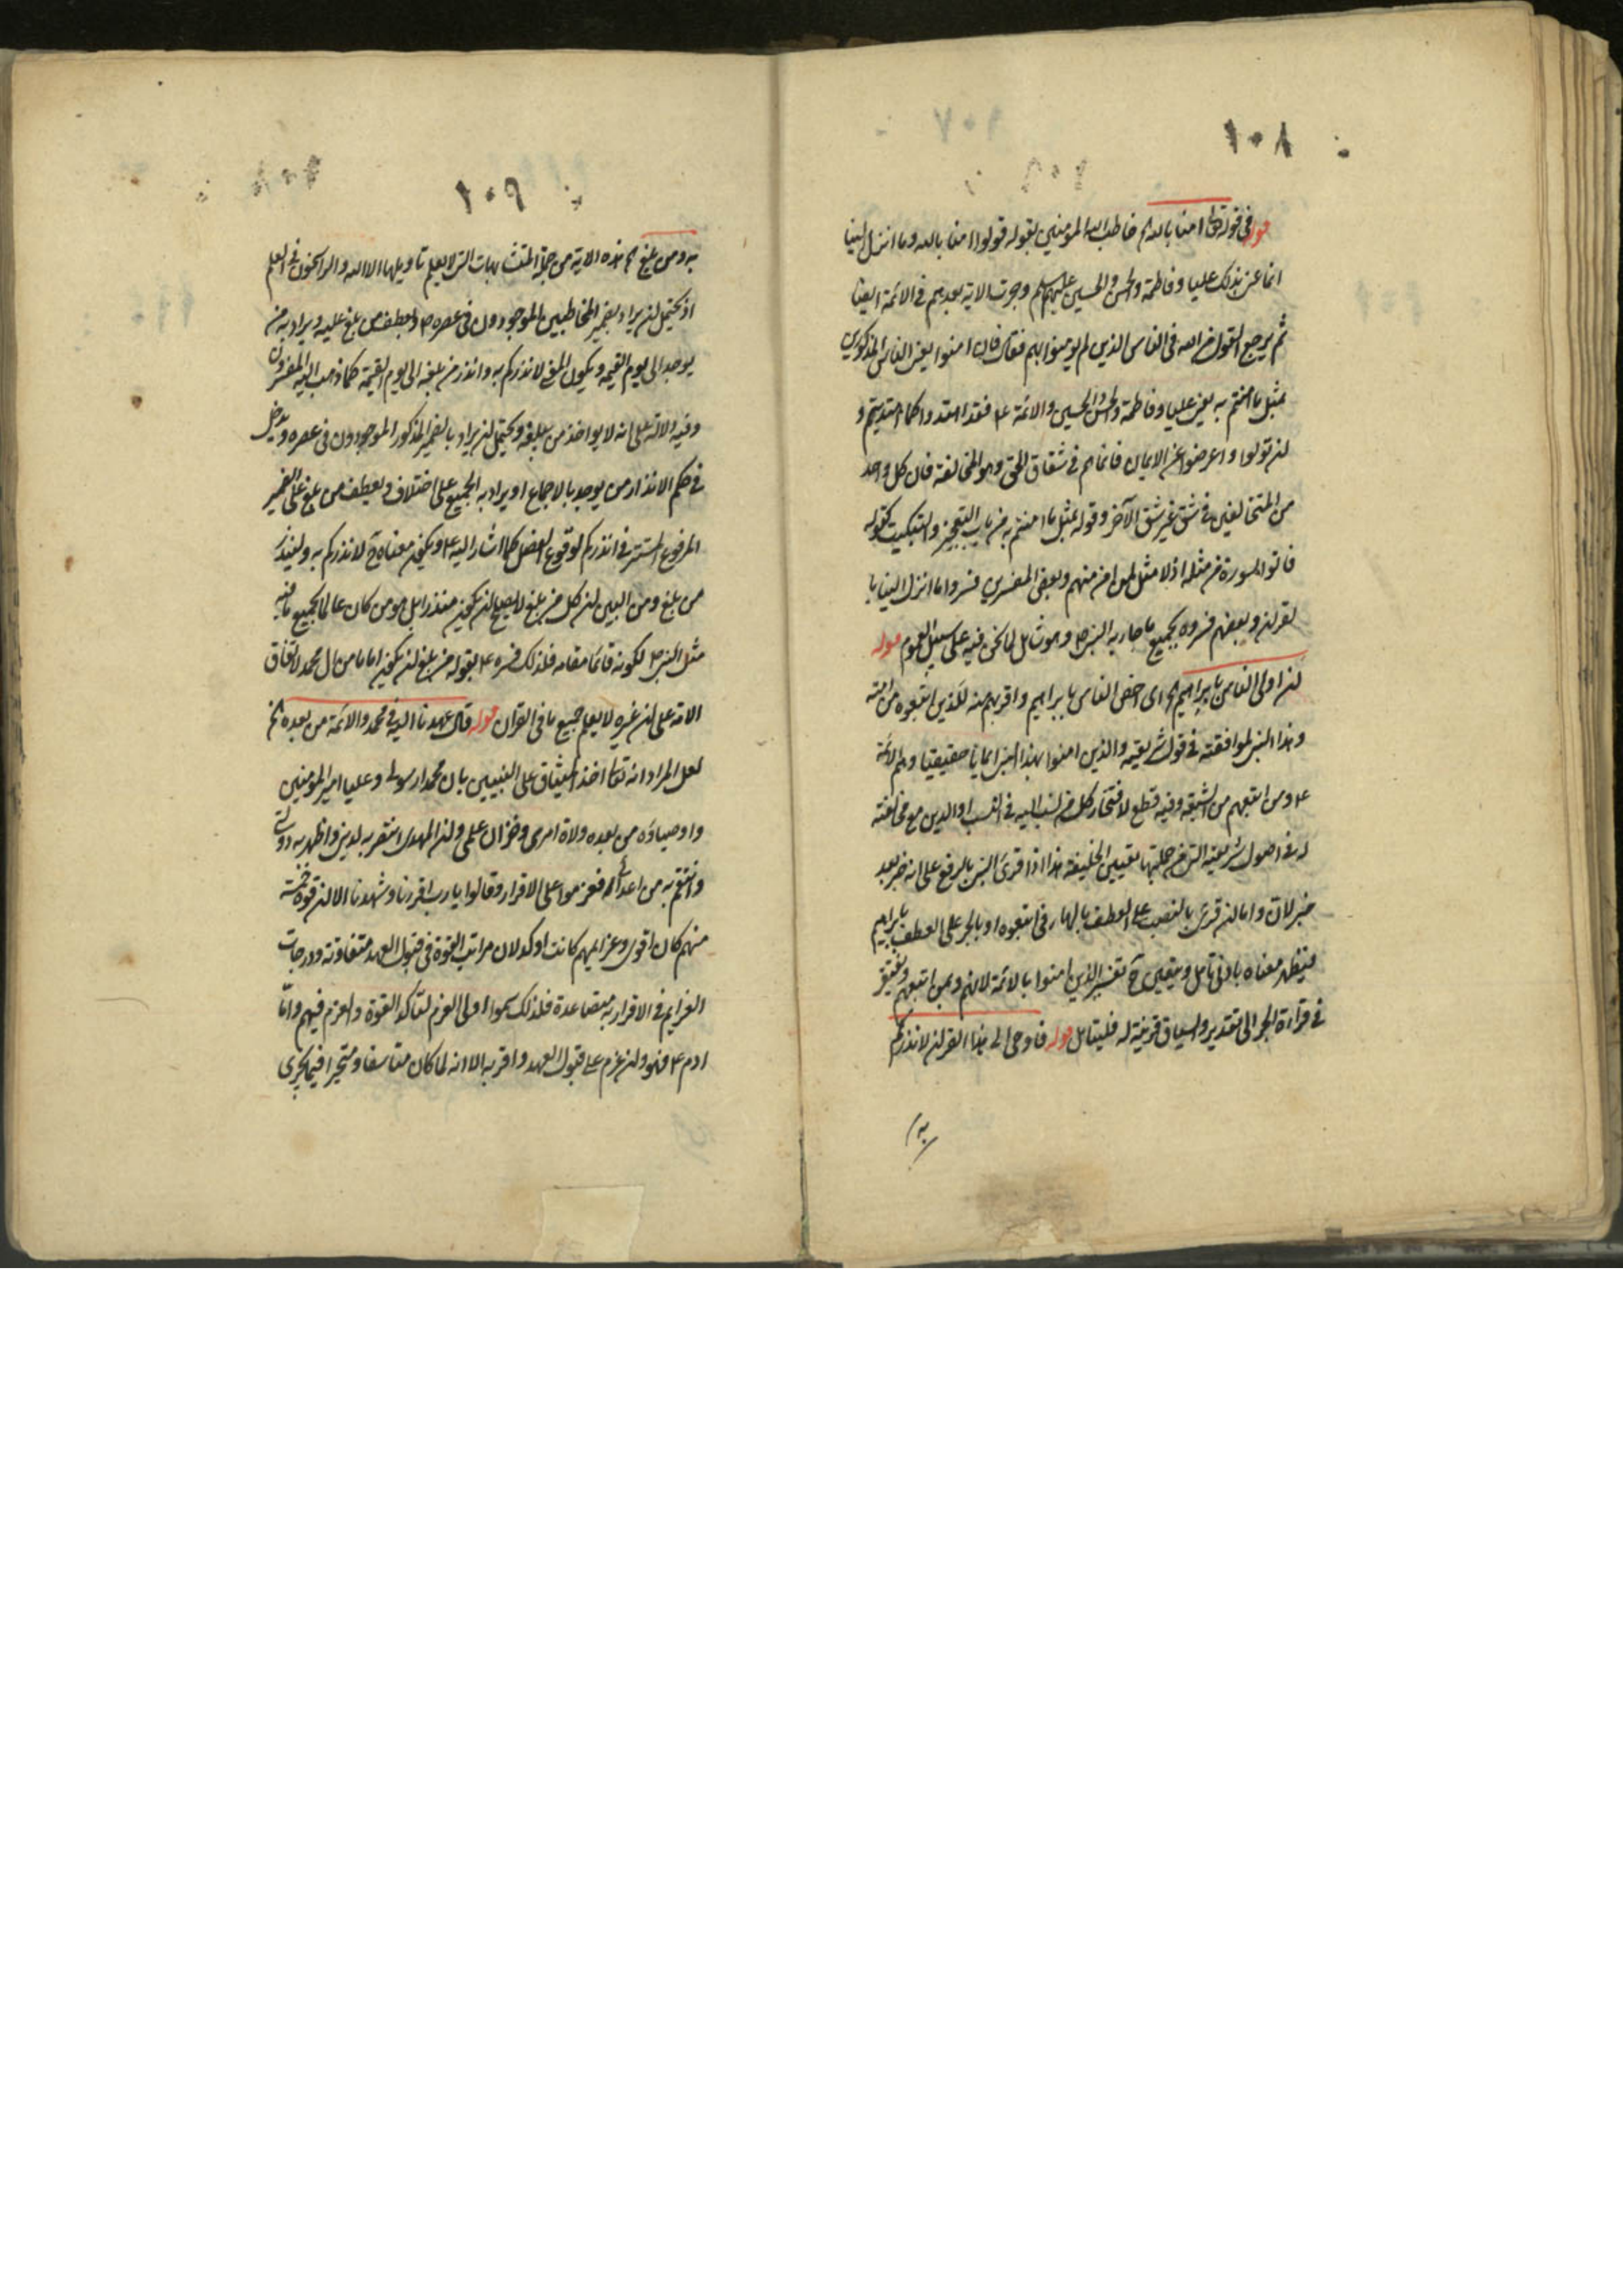 ١٠٨
قوله في قوله تعالى امنا بالله الخ خاطب الله المؤمنين بقوله قولوا امنا بالله وما انزل الينا
انما عنى بذلك عليا وفاطمة والحسن والحسين عليهم السلم وجرت الاية بعدهم في الائمة ايضا
ثم يرجع القول من الله في الناس الذين لم يومنوا بهم فقال فان امنوا يعنى الناس المذكورين
بمثل ما امنتم به يعنى عليا وفاطمة والحسن والحسين والائمة ع فقد اهتدوا كما اهتديتم و
ان تولوا واعرضوا عن الايمان فانما هم في شقاق الحق وهو المخالفة فان كل واحد
من المتخالفين في شق غير شق الآخر وقوله بمثل ما امنتم به من باب التعجيز والتبكيت كقوله
فاتوا بسورة من مثله اذ لا مثل لمن امن منهم وبعض المفسرين فسروا ما انزل الينا با
لقران وبعضهم فسروه بجميع ما جاء به النبى ص وهو شامل لما نحن فيه على سبيل العموم قوله
ان اولى الناس بابراهيم الخ اى اخص الناس بابراهيم واقربهم منه للذين اتبعوه من امته
وهذا النبى لموافقته في قول شريعته والذين امنوا بهذا النبى ايمانا حقيقيا وهم الائمة
ع ومن اتبعهم من الشيعة وفيه قطع لافتخار كل من نسب اليه في النسب او الدين مع مخالفته
له في اصول شريعته التى من جملتها تعيين الخليفة هذا اذا قرئ النبى بالرفع على انه خبر بعد
خبر لان واما ان قرئ بالنصب على العطف بالهاء في اتبعوه او بالجر على العطف بابراهيم
فيظهر معناه بادنى تامل ويتعين ح تفسير الذين امنوا بالائمة لانهم وبمن اتبعهم ويفتقر
في قراءة الجر الى تقدير والسياق قرينة له فليتامل قوله فاوحى الى هذا القران لانذركم
به
١٠٩
به ومن بلغ الخ هذه الاية من جملة المتشابهات التى لا يعلم تاويلها الا الله والراسخون في العلم
اذ يحتمل ان يراد بضمير المخاطبين الموجودون في عصره ص ويعطف من بلغ عليه ويراد به من
يوجد الى يوم القيمة ويكون المعنى لانذركم به وانذر من بلغه الى يوم القيمة كما ذهب اليه المفسرون
وفيه دلالة على انه لا يواخذ من لم يبلغه ويحتمل ان يراد بالضمير المذكور الموجودون في عصره ويدخل
في حكم الانذار من يوجد بالاجماع او يراد به الجميع على اختلاف ويعطف من بلغ على الضمير
المرفوع المستتر في انذركم لوقوع الفصل كما اشار اليه ع ويكون معناه ح لانذركم به ولينذر
من بلغ ومن البين ان كل من بلغ لا يصلح ان يكون منذرا بل هو من كان عالما بجميع ما فيه
مثل النبى ص لكونه قائما مقامه فلذلك فسره ع بقوله من بلغ ان يكون اماما من ال محمد لاتفاق
الامة على ان غيره لا يعلم جميع ما في القرآن قوله قال عهدنا اليه في محمد والائمة من بعده الخ
لعل المراد انه تعالى اخذ الميثاق على النبيين بان محمدا رسولى وعليا امير المومنين
واوصياءه من بعده ولاة امرى وخزان علمى وان المهدى انتصر به لدينى واظهر به دولتى
وانتقم به من اعدائى فعزموا على الاقرار وقالوا يا رب اقررنا وشهدنا الا ان قوة خمسة
منهم كان اقوى وعزايمهم كانت اوكد لان مراتب القوة في قبول العهد متفاوتة ودرجات
العزايم في الاقرار به متصاعدة فلذلك سموا اولى العزم لتاكد القوة والعزم فيهم واما
ادم ع فهو وان عزم على قبول العهد واقر به الا انه لما كان متاسفا ومتحيرا فيما يجرى